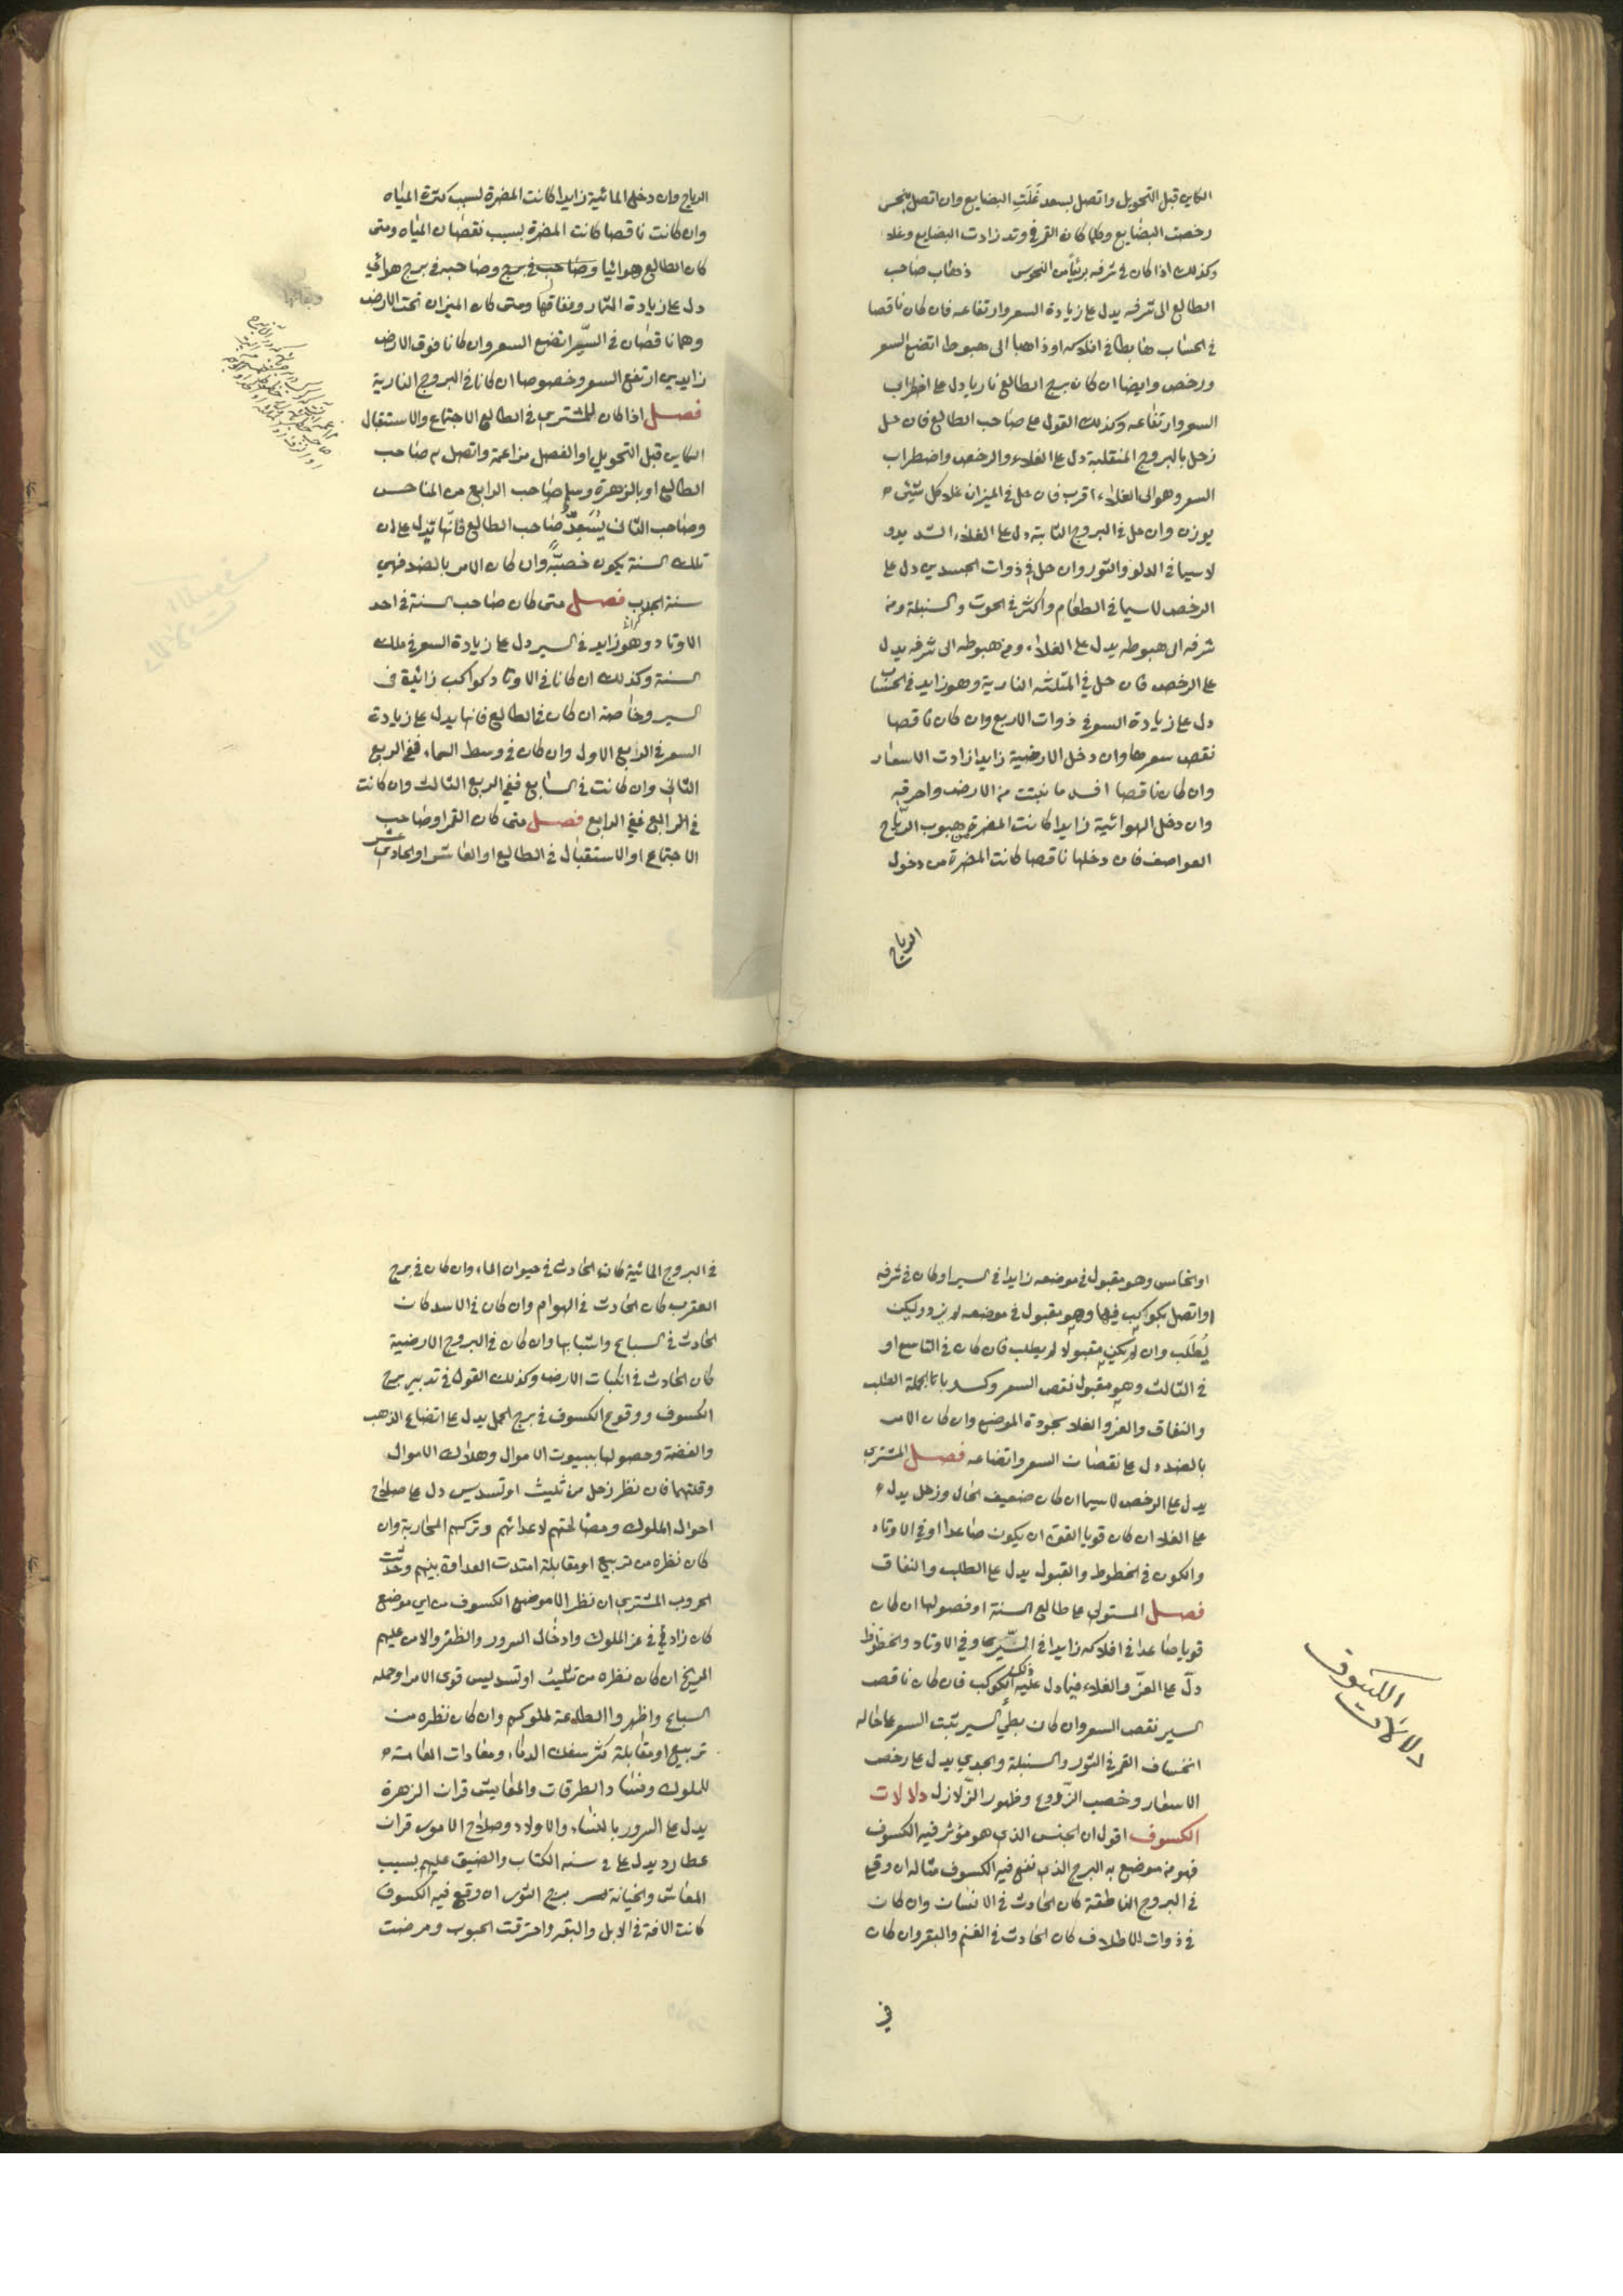 الكاين قبل التحويل واتصل بسعد غَلَتِ البضايع وان اتصل بنحس
رخصت البضايع وكلما كان القمر في وتد زادت البضايع وغلا
وكذلك اذا كان في شرفه بريئا من النحوس ذهاب صاحب
الطالع الى شرفه يدل على زيادة السعر وارتفاعه فان كان ناقصا
في الحساب هابطا في افلاكه او ذاهبا الى هبوطه اتضع السعر
ورخص وايضا ان كان برج الطالع ناريا دل على اضطراب
السعر وارتفاعه وكذلك القول على صاحب الطالع فان حل
زحل بالبروج المنقلبة دل على الغلاء والرخص واضطراب
السعر وهو الى الغلاء اقرب فان حل في الميزان غلا كل شئ
يوزن وان حل في البروج الثابتة دل على الغلاء الشديد
لا سيما في الدلو والثور وان حل في ذوات الجسدين دل على
الرخص لا سيما في الطعام واكثر في الحوت والسنبلة ومن
شرفه الى هبوطه يدل على الغلاء ومن هبوطه الى شرفه يدل
على الرخص فان حل في المثلثه النارية وهو زايد في الحساب
دل على زيادة السعر في ذوات الاربع وان كان ناقصا
نقص سعرها وان دخل الارضية زايدا زادت الاسعار
وان كان ناقصا افسد ما نبتت من الارض واحرقه
وان دخل الهوائية زايدا كانت المضرة من هبوب الرياح
العواصف فان دخلها ناقصا كانت المضرة من دخول
الرياح
الرياح وان دخل المائية زايدا كانت المضرة بسبب كثرة المياه
وان كانت ناقصا كانت المضرة بسبب نقصان المياه ومتى
كان الطالع هوائيا وصاحب في برج وصاحبه في برج هوائي
دل على زيادة الثمار ونفاقها ومتى كان الميزان تحت الارض
وهما ناقصان في السير اتضع السعر وان كانا فوق الارض
زايدين ارتفع السعر وخصوصا ان كانا في البروج النارية
فصل اذا كان للمشتري في الطالع الاجتماع والاستقبال
الكاين قبل التحويل او الفصل مزاعمة واتصل به صاحب
الطالع او بالزهرة وسلم صاحب الرابع من المناحس
وصاحب الثاني يُسْعِدُ صاحب الطالع فانها تدل على ان
تلك السنة يكون خصبةً وان كان الامر بالضد فهي
سنة الجدب فصل متى كان صاحب السنة في احد
الاوتاد وهو زايد في السير دل على زيادة السعر في تلك
السنة وكذلك ان كانا في الاوتاد كواكب زائية في
السير وخاصة ان كان في الطالع فانها يدل على زيادة
السعر في الرابع الاول وان كان في وسط السماء ففي الربع
الثاني وان كانت في السابع ففي الربع الثالث وان كانت
في الرابع ففي الرابع فصل متى كان القمر او صاحب
الاجتماع او الاستقبال في الطالع او العاشر او الحادي عشر
او الخامس وهو مقبول في موضعه زايدا في السير او كان في شرفه
او اتصل بكواكب فيها وهو مقبول في موضعه لم يزد وليكن
يُطْلَب وان لم يكن مقبولا لم يطلب فان كان في التاسع او
في الثالث وهو مقبول نقص السعر وكسد بالجملة الطلب
والنفاق والعز والغلا بجودة الموضع وان كان الامر
بالضد دل على نقصان السعر واتضاعه فصل المشتري
يدل على الرخص لا سيما ان كان ضعيف الحال وزحل يدل
على الغلا ان كان قويا القوة ان يكون صاعدا او في الاوتاد
والكون في الحظوظ والقبول يدل على الطلب والنفاق
فصل المستولي على طالع السنة او فصولها ان كان
قويا صاعدا في افلاكه زايدا في السير او في الاوتاد والحظوظ
دلّ على العزّ والغلاء فيما دل عليه ذلك الكوكب فان كان ناقص
السير نقص السعر وان كان بطئ السير ثبت السعر على حاله
انخساف القمر في الثور والسنبلة والجدي يدل على رخص
الاسعار وخصب الزروع وظهور الزلازل دلالات
الكسوف اقول ان الجنس الذي هو مؤثر فيه الكسوف
فهو من موضع به البرج الذي نفع فيه الكسوف مثاله ان وقع
في البروج الناطقة كان الحادث في الانسان وان كان
في ذوات الاظلاف كان الحادث في الغنم والبقر وان كان
في
دلالات
الكسوف
في البروج المائية كان الحادث في حيوان الماء وان كان في برج
العقرب كان الحادث في الهوام وان كان في الاسد كان
الحادث في السباع واشباهها وان كان في البروج الارضية
كان الحادث في نبات الارض وكذلك القول في تدبير برج
الكسوف ووقوع الكسوف في برج الحمل يدل على اتضاع الذهب
والفضة وحصولها ببيوت الاموال وهلاك الاموال
وقلتها فان نظر زحل من تثليث او تسديس دل على صلاح
احوال الملوك ومصالحتهم لاعدائهم وتركهم المحاربة وان
كان نظره من تربيع او مقابلة امتدت العداوة بينهم وحدثت
الحروب المشتري ان نظر الى موضع الكسوف من اي موضع
كان زاد في عز الملوك وادخال السرور والظفر والامن عليهم
المريخ ان كان نظره من تثليث او تسديس قوى الامر او جمله
السباع واظهروا الطاعة لملوكهم وان كان نظره من
تربيع او مقابلة كثر سفك الدماء ومعادات العامة
للملوك وفساد الطرقات والمعايش قران الزهرة
يدل على السرور بالنساء والاولاد وصلاح الامور قران
عطارد يدل على في سنه الكتاب والضيق عليهم بسبب
المعاش والخيانة برج الثور ان وقع فيه الكسوف
كانت الافة في الابل والبقر واحترقت الحبوب ومرضت